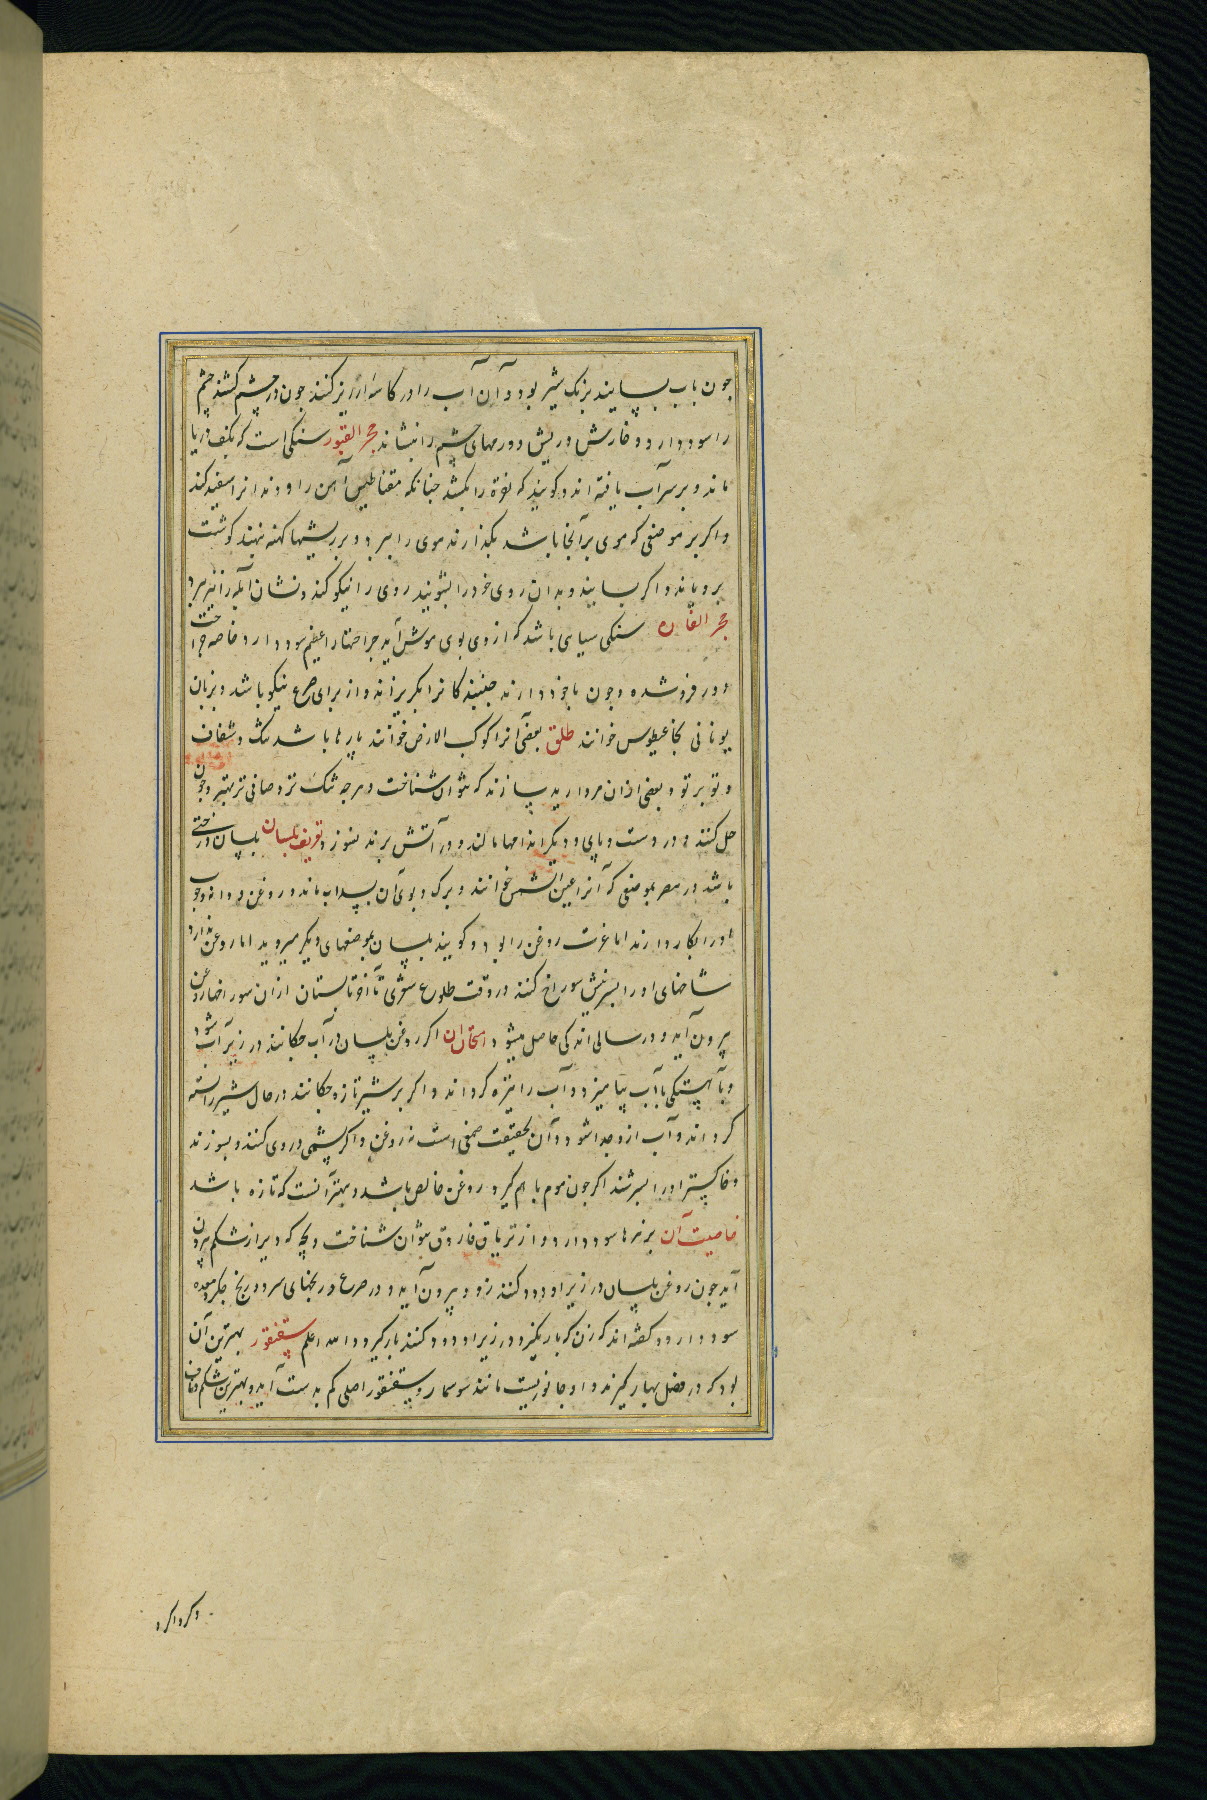 جون باب بسایند برنک شیر بود و آن آب را در کاسه ارزیز کنند جون در چشم کشند چشم
را سود دارد و خارش و ریش و ورمهای چشم را بنشاند حجر القبور سنکی است که بکف دریا
ماند و بر سر آب یافته اند و کویند که نقره را بکشد جنانکه مقناطیس آهن را و دندانرا سفید کند
و اکر بر موضعی که موی بر آنجا باشد بکذارند موی را ببرد و بر ریشها کهنه نهند کوشت
برویاند و اکر بسایند و بدان روی خود را بشویند روی را نیکو کند و نشان آبله را نیز ببرد
حجر الفاره سنکی سیاهی باشد که از وی بوی موش آید جراحتها را عظیم سود دارد خاصه جراحت
و جون با خود دارند کانرا بکریزاند و از برای صرع نیکو باشد و بزبان
یونانی خوانند طلق بعضی آنرا کوکب الارض خوانند پارها باشد تنک و شفاف
و تو بر تو و بعضی ازان مروارید سازند که نتوان شناخت و هرجه تنک تر و صافی تر بهتر و جون
حل کنند و در دست و پای و دیکر اندامها مالند و در آتش برند نسوزد تعریف بلسان بلسان درختی
باشد در مصر بموضعی که آنرا عین الشمس خوانند و برک و بوی آن بسداب ماند و روغن و دانه و جوب
اورا بکار دارند اما عزت روغن را بود و کویند بلسان بموضعهای دیکر میروید اما روغن ندارد
شاخهای او را بسر نیش سوراخ کنند در وقت طلوع شعری تا آخر تابستان ازان سوراخها روغن
بیرون آید و در سالی اندکی حاصل میشود امتحان آن اکر روغن بلسان در آب جکانند در زیر آب شود
و بآهستکی با آب بیامیزد و آب را تیره کرداند و اکر بر شیر تازه جکانند در حال شیر را بسته
کرداند و آب ازو جدا شود و آن بحقیقت صمغی است نه روغن و اکر پشمی در وی کنند و بسوزند
و خاکستر او را بسرشند اکر جون موم باهم کیرد روغن خالص باشد و بهتر آنست که تازه باشد
خاصیت آن برزهرها سود دارد و از تریاق فاروق بتوان شناخت و بچه که دیر از شکم بیرون
آید جون روغن بلسان در زیر او دود کنند زود بیرون آید و در صرع و رنجهای سرد و رنج جکر و معده
سود دارد و کفته اند که زن که بار نکیرد در زیر او دود کنند بار کیرد و الله اعلم سقنقور بهترین آن
بود که در فصل بهار کیرند و او جانوریست مانند سوسمار و سقنقور اصلی کم بدست آید و بهترین شکم و ناف
و کرداکرد